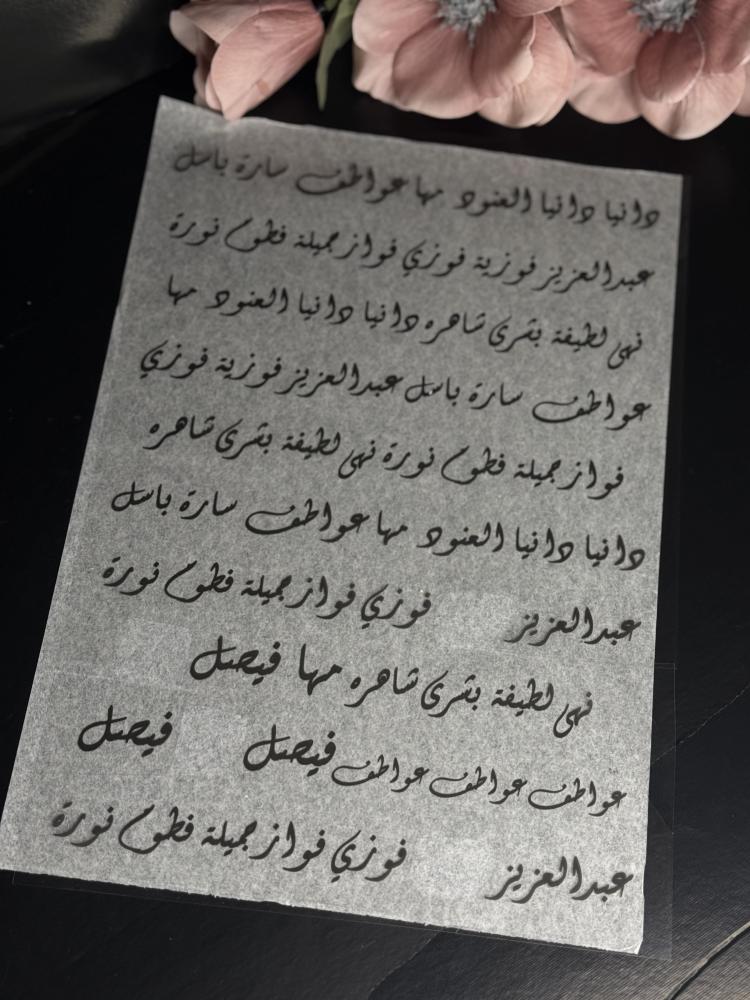 دانيا دانيا العنود مها عواطف سارة باسل
عبدالعزيز فوزية فوزي فواز جميلة فطوم نورة
نهى لطيفة بشرى شاهره دانيا دانيا العنود مها
عواطف سارة باسل عبدالعزيز فوزية فوزي
فواز جميلة فطوم نورة نهى لطيفة بشرى شاهره
دانيا دانيا العنود مها عواطف سارة باسل
عبدالعزيز فوزي فواز جميلة فطوم نورة
نهى لطيفة بشرى شاهره مها فيصل
عواطف عواطف عواطف فيصل فيصل
عبدالعزيز فوزي فواز جميلة فطوم نورة